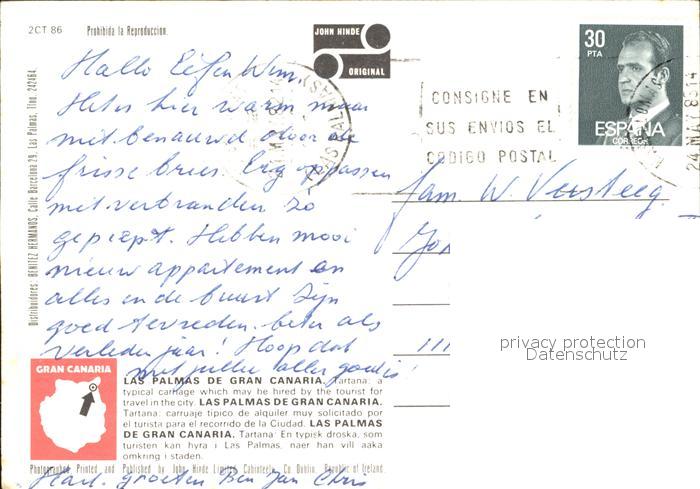 2CT 86 Prohibida la Reproduccion.
JOHN HINDE
ORIGINAL
30
PTA
ESPAÑA
CORREOS
CONSIGNE EN
SUS ENVIOS EL
CODIGO POSTAL
Hallo
Het is hier warm maar
niet benauwd door de
frisse bries. Erg oppassen
niet verbranden zo
gepiept. Hebben mooi
nieuw appartement en
alles in de buurt zijn
goed tevreden. beter als
verleden jaar! Hoop dat
met jullie alles goed is!
Hart. groeten Ben Jan Chris
Fam. W. Versteeg.
privacy protection
Datenschutz
Distribuidores: BENITEZ HERMANOS, Calle Barcelona 29, Las Palmas, Tfno. 242464.
GRAN CANARIA
LAS PALMAS DE GRAN CANARIA. Tartana: a
typical carriage which may be hired by the tourist for
travel in the city. LAS PALMAS DE GRAN CANARIA.
Tartana: carruaje típico de alquiler muy solicitado por
el turista para el recorrido de la Ciudad. LAS PALMAS
DE GRAN CANARIA. Tartana: En typisk droska, som
turisten kan hyra i Las Palmas, naer han vill aaka
omkring i staden.
Photographed, Printed and Published by John Hinde Limited, Cabinteely, Co. Dublin, Republic of Ireland.